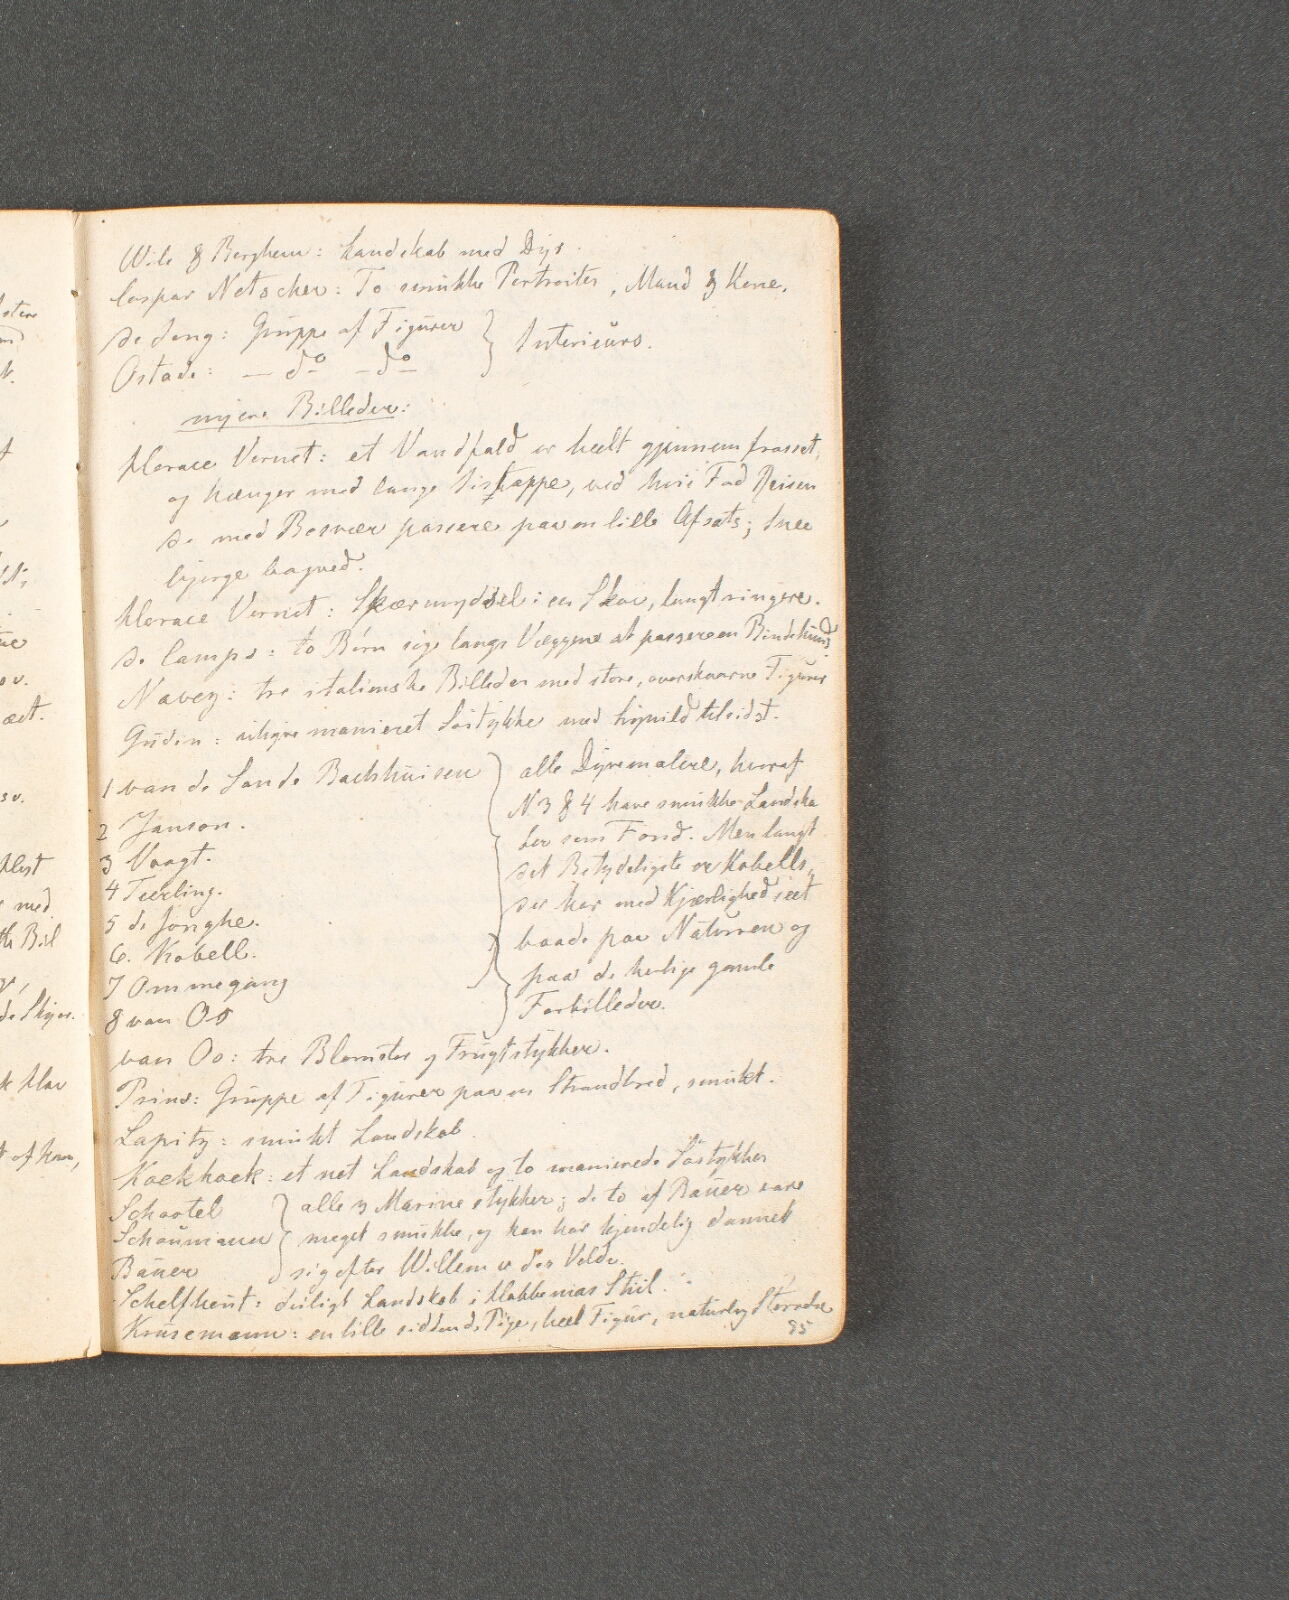 Wils & Berghem: Landskab med Dyr.
Caspar Netscher: To smukke Portraiter, Mand & Kone.
de Jong: Gruppe af Figurer } Interieurs.
Ostade: — do — do
nyere Billeder:
Horace Vernet: et Vandfald er heelt gjennemfrosset,
og hænger med lange Iistappe, ved hvis Fod Reisen
de med Besvær passere paa en lille Afsats; Snee
bjerge bagved.
Horace Vernet: Skærmydsel i en Skov, langt ringere.
de Camps: to Börn söge langs Væggene at passere en Bindehund
Navez: tre italienske Billeder med store, overskaarne Figurer
Gudin: manieret Söstykke med
1 van de Sande Backhuisen } alle Dyremalere, hvoraf
N 3 & 4 have smukke Landska
2 Janson.
ber som Fond. Men langt
3 Voogt.
det Betydeligste er Kobells,
4 Teerling.
der har med Kjærlighed seet
5 de Jonghe.
baade paa Naturen og
6. Kobell.
paa de herlige gamle
7 Ommegang
Forbilleder.
8 van Os
van Os: tre Blomster og Frugtstykker.
Prins: Gruppe af Figurer paa en Strandbred, smukt.
Lapitz: smukt Landskab.
Koekkoek: et net Landskab og to manierede Söstykker
Schootel } alle 3 Marinestykker; de to af Bauer vare
Schoumann meget smukke, og han har kjendelig dannet
Bauer sig efter Willem v der Velde.
Schelfhout: deiligt Landskab i Hobbemas Stiil.
Krusemann: en lille siddende Pige, heel Figur, naturlig Störrelse
95